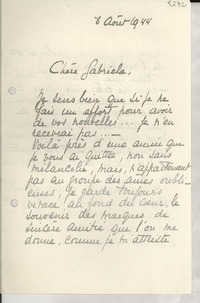 8242
8 Août 1944
Chère Gabriela,
Je sens bien que si je ne
fais un effort pour avoir
de vos nouvelles.... je n'en
recevrai pas...—
Voilà près d'une année que
je vous ai quittée, non sans
mélancolie, mais, n'appartenant
pas au groupe des âmes oubli-
euses, je garde toujours
vivace au fond du cœur, le
souvenir des marques de
sincère amitié que l'on me
donne, comme je m'attriste